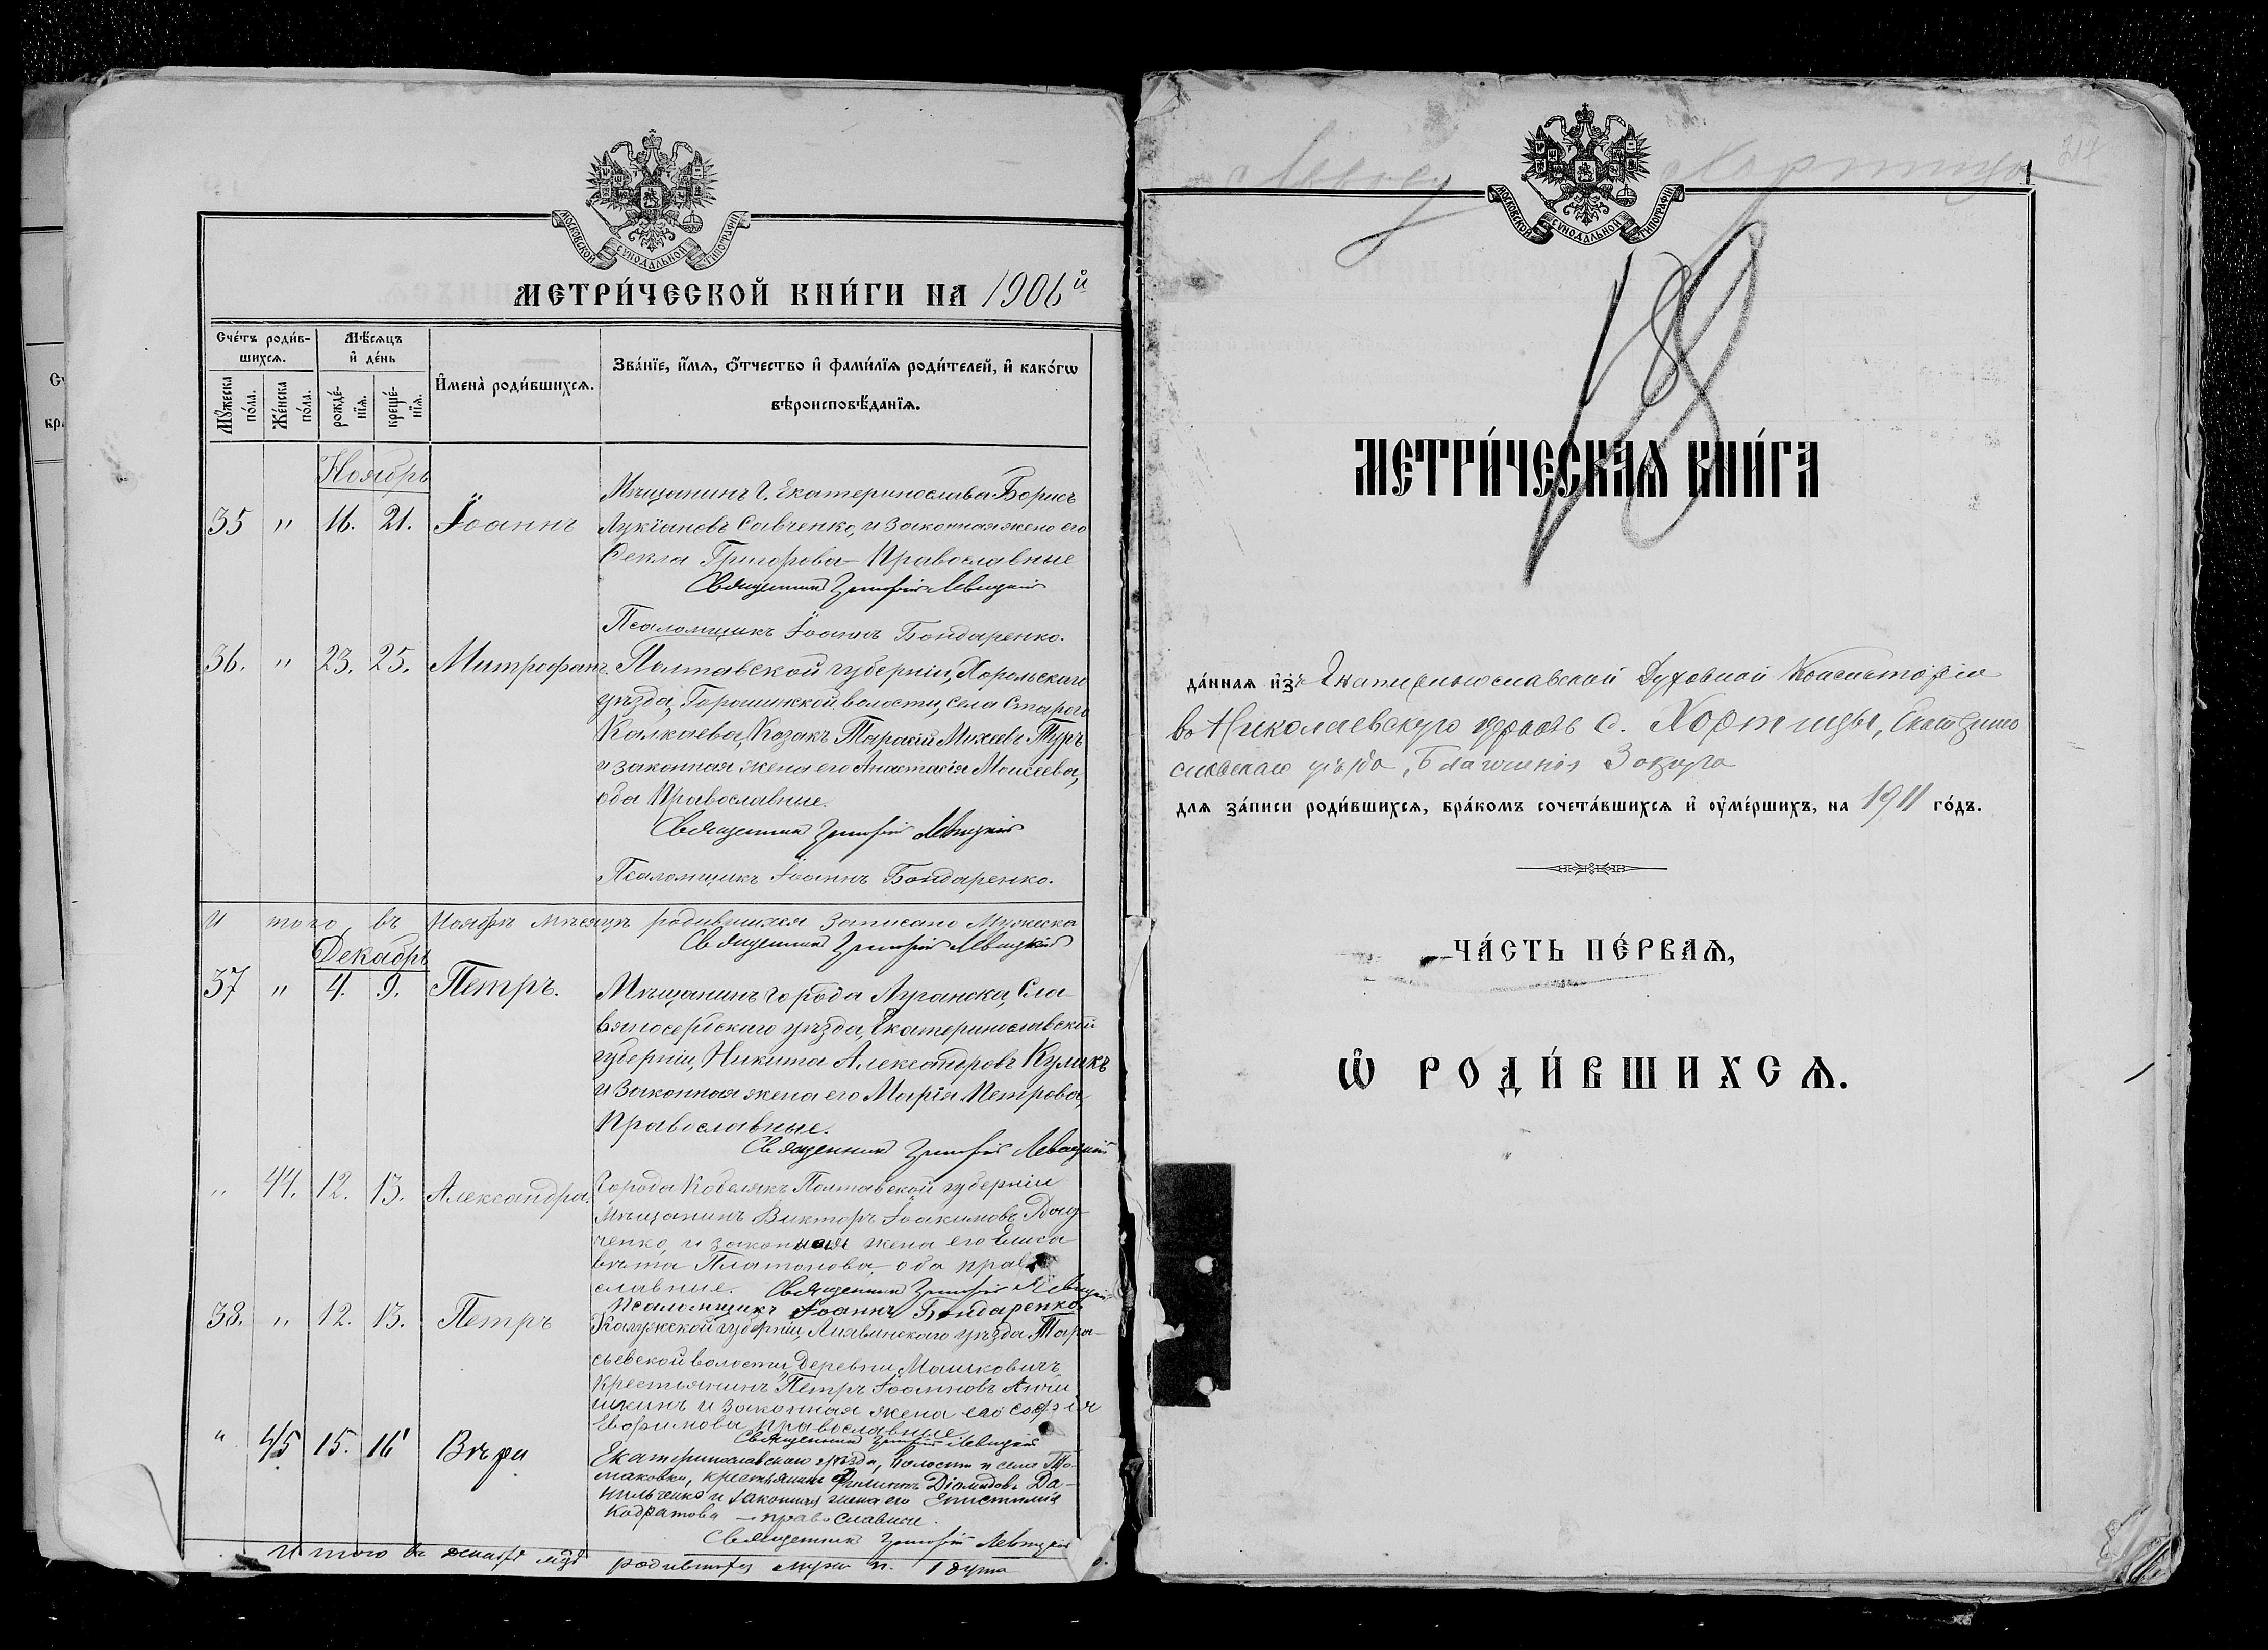 МОСКОВСКОЙ СѴНОДАЛЬНОЙ ТИПОГРАФІИ
МЕТРИ́ЧЕСКОЙ КНИ́ГИ НА 1906й
Сче́тъ роди́в-
шихсѧ.
Мѣ́сѧцъ
и҆ де́нь
И҆мена̀ роди́вшихсѧ.
Зва́нїе, и҆́мѧ, ѻ҆́тчество и҆ фами́лїѧ роди́телей, и҆ како́гѡ
вѣроисповѣ́данїѧ.
Мꙋ́жеска
по́ла.
Же́нска
по́ла.
рожде́-
нїѧ.
креще́-
нїѧ.
Ноябрь
Мѣщанинъ г. Екатеринослава Борисъ
35 " 16. 21. Іоаннъ Лукіановъ Савченко, и законная жена его
Ѳекла Григорова – Православные
Священникъ Григорій Левицкій
Псаломщикъ Іоаннъ Бондаренко.
36. " 23. 25. Митрофанъ. Полтавской губерніи, Хорольскаго
уѣзда, Горошинской волости, села Стараго
Калкаева, Козакъ Тарасій Михеевъ Туръ
и законная жена его Анастасія Моисеева,
оба Православные.
Священникъ Григорій Левицкій
Псаломщикъ Іоаннъ Бондаренко.
И того въ Ноябрѣ мѣсяцѣ родившихся записано Мужеска
Священникъ Григорій Левицкій
Декабрь
37 " 4. 9. Петръ. Мѣщанинъ города Луганска, Сла-
вяносербскаго уѣзда, Екатеринославской
губерніи, Никита Александровъ Куликъ
и законная жена его Марія Петрова,
Православные.
Священникъ Григорій Левицкій
" 44. 12. 13. Александра. Города Кобелякъ Полтавской губерніи
Мѣщанинъ Викторъ Іоакимовъ
ченко, и законная жена его Елиса
вѣта Платонова, оба право
славные. Священникъ Григорій Левицкій
Псаломщикъ Іоаннъ Бондаренко
38. " 12. 13. Петръ Калужской губерніи, Лихвинскаго уѣзда Тара-
сьевской волости, деревни Машковичъ
Крестьянинъ Петръ Іоанновъ
и законная жена его Софія
Евфимова православные
Священникъ Григорій Левицкій
" 45 15. 16 Вѣра Екатеринославскаго уѣзда, волости и села То-
маковки, крестьянинъ Филиппъ Діомидовъ Да-
нильченко и законная жена его Епистимія
Кодратова – православные.
Священникъ Григорій Левицкій
И того въ декабрѣ родившихся муж. п. 1 душа
217
Хортица
189
МЕТРИ́ЧЕСКАѦ КНИ́ГА
МОСКОВСКОЙ СѴНОДАЛЬНОЙ ТИПОГРАФІИ
да́ннаѧ и҆зъ Екатеринославской Духовной Консисторіи
въ Николаевскую церковь с. Хортицы, Екатерино
славскаго уѣзда, Благочинія 3 округа
длѧ за́писи роди́вшихсѧ, бра́комъ сочета́вшихсѧ и҆ ᲂу҆ме́ршихъ, на 1911 го́дъ.
ЧА́СТЬ ПЕ́РВАѦ,
Ѡ҆ РОДИ́ВШИХСѦ.